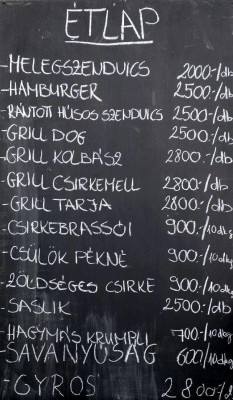 ÉTLAP
-MELEGSZENDVICS 2000.-/db
-HAMBURGER 2500.-/db
-RÁNTOTT HÚSOS SZENDVICS 2500.-/db
-GRILL DOG 2500.-/db
-GRILL KOLBÁSZ 2800.-/db
-GRILL CSIRKEMELL 2800.-/db
-GRILL TARJA 2800.-/db
-CSIRKEBRASSÓI 900.-/10dkg
-CSÜLÖK PÉKNÉ 900.-/10dkg
-ZÖLDSÉGES CSIRKE 900.-/10dkg
-SASLIK 2500.-/db
-HAGYMÁS KRUMPLI 700.-/10dkg
-SAVANYÚSÁG 600/10dkg
-GYROS 2800.-/d